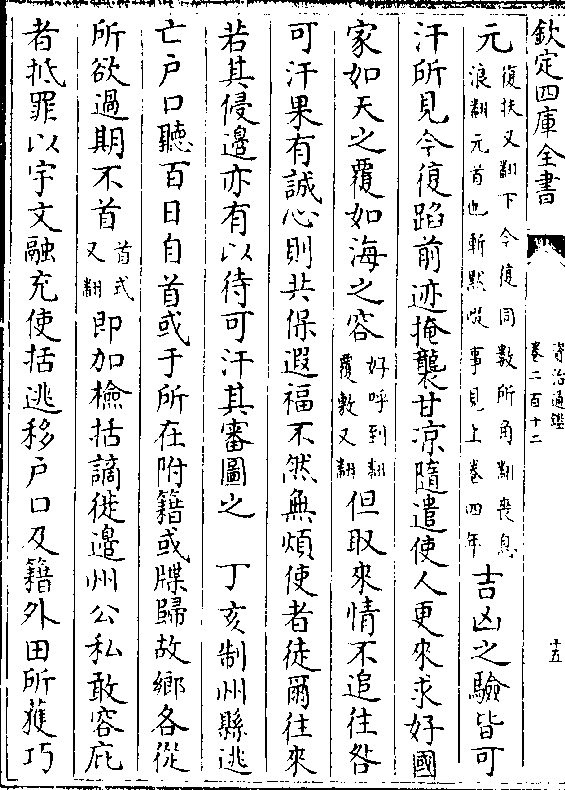 欽定四庫全書
資治通鑑
卷二百十二
十五
元
復扶又翻下今復同數所角翻喪息
浪翻元首也斬默啜事見上卷四年
吉凶之驗皆可
汗所見今復蹈前迹掩襲甘涼隨遣使人更來求好國
家如天之覆如海之容
好呼到翻
覆敷又翻
但取來情不追往咎
可汗果有誠心則共保遐福不然無煩使者徒爾往來
若其侵邊亦有以待可汗其審圖之　丁亥制州縣逃
亡戶口聽百日自首或于所在附籍或牒歸故鄉各從
所欲過期不首
首式
又翻
即加檢括謫徙邊州公私敢容庇
者抵罪以宇文融充使括逃移戶口及籍外田所獲巧